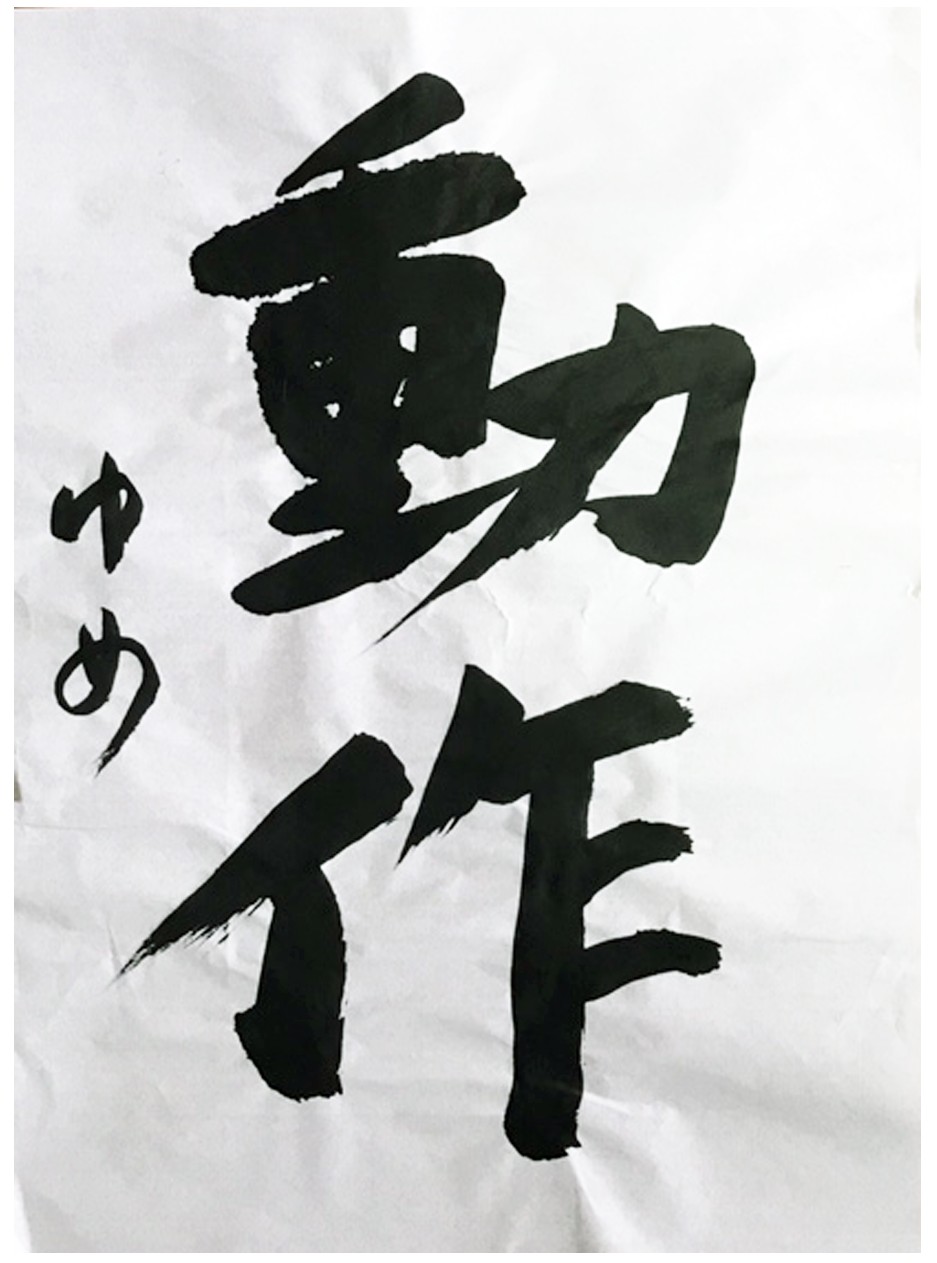 動作
ゆめ